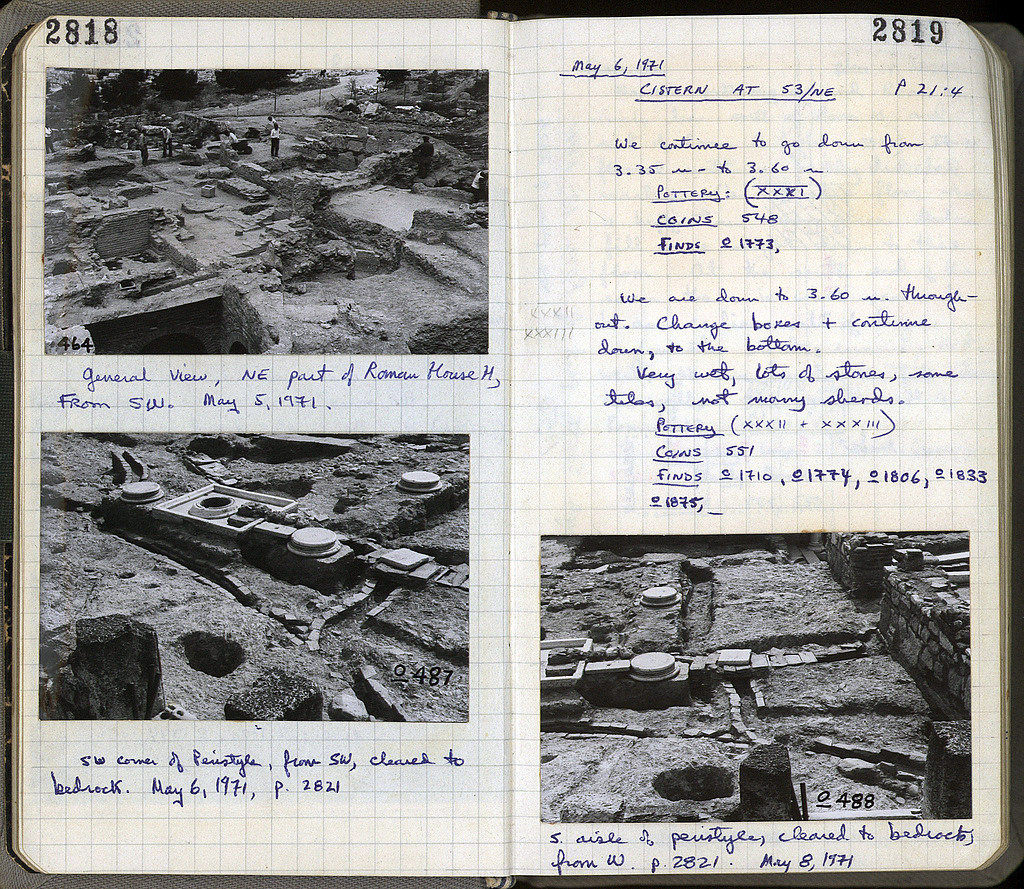 2818
464
General View, NE part of Roman House H,
From SW. May 5, 1971.
Ω 487
SW corner of Peristyle, from SW, cleared to
bedrock. May 6, 1971, p. 2821
2819
May 6, 1971
CISTERN AT 53/NE P 21:4
We continue to go down from
3.35 m - to 3.60 m
POTTERY: (XXXI)
COINS 548
FINDS Ω 1773,
We are down to 3.60 m. through-
XXXII
out. Change boxes + continue
XXXIII
down, to the bottom.
Very wet, lots of stones, some
tiles, not many sherds.
POTTERY (XXXII + XXXIII)
COINS 551
FINDS Ω 1710, Ω 1774, Ω 1806, Ω 1833
Ω 1875,
Ω 488
S. aisle of peristyle, cleared to bedrock,
from W. p. 2821. May 8, 1971